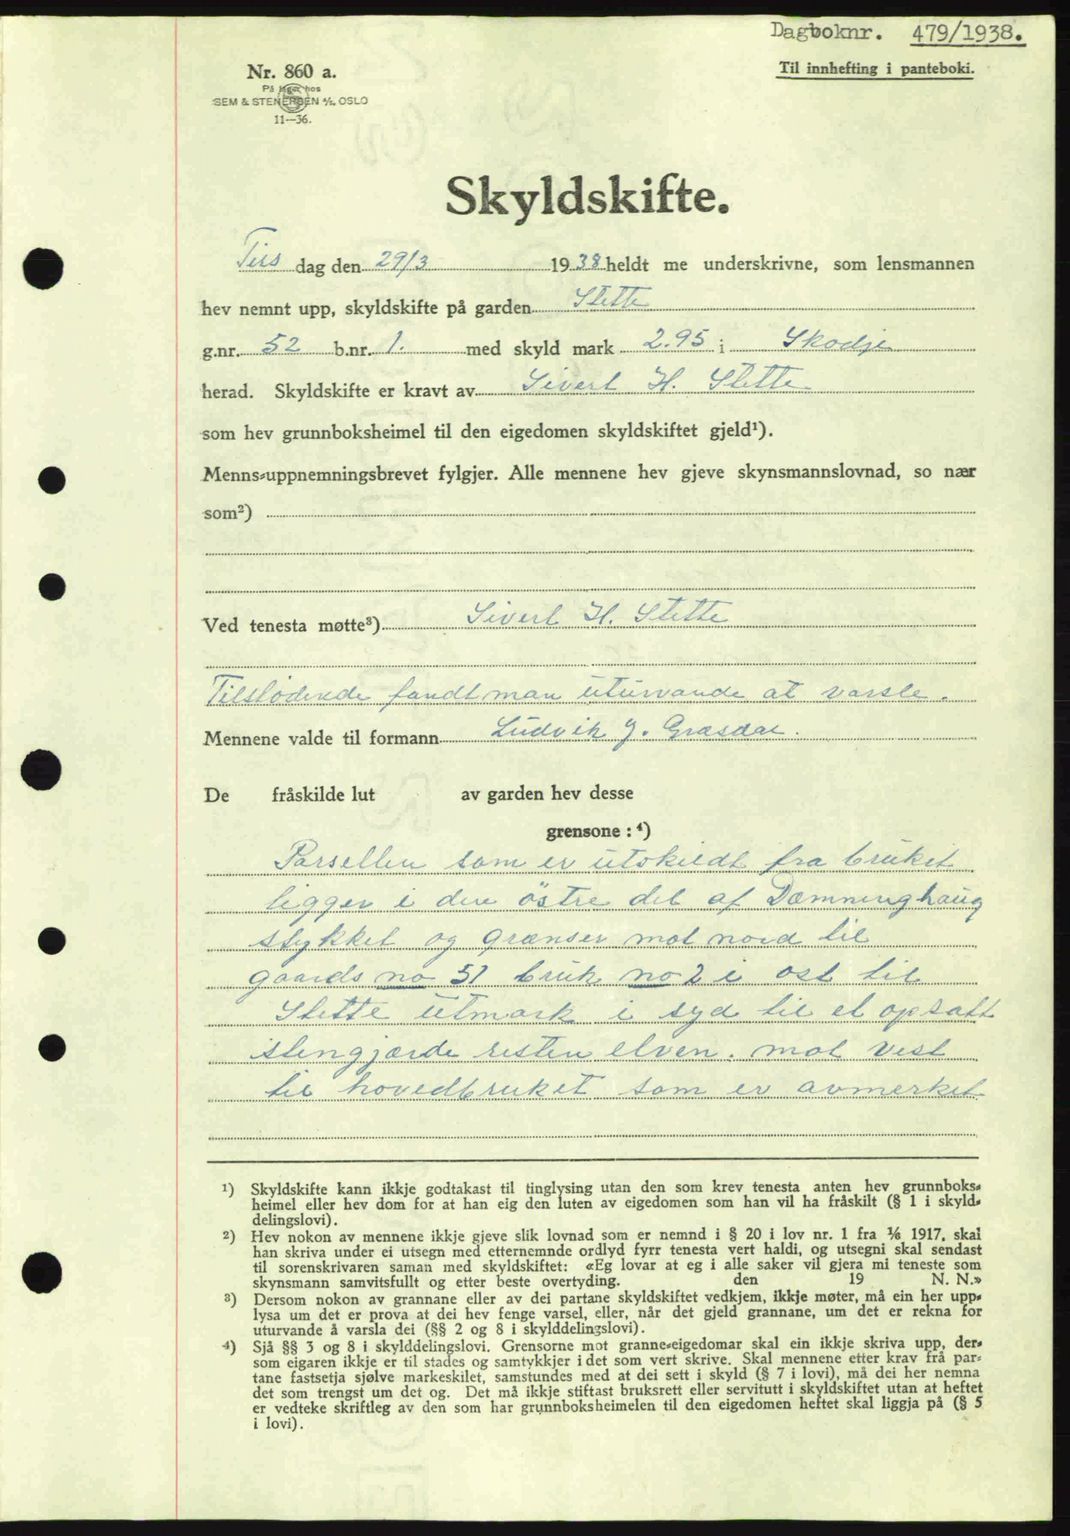 Dagboknr. 479/1938.
Til innhefting i panteboki.
Nr. 860 a.
På lager hos
SEM & STENERSEN A/S. OSLO
11—36.
Skyldskifte.
Tirs dag den 29/3 1938 heldt me underskrivne, som lensmannen
hev nemnt upp, skyldskifte på garden Stette
g.nr. 52 b.nr. 1. med skyld mark 2.95 i Skodje
herad. Skyldskifte er kravt av Sivert H. Stette
som hev grunnboksheimel til den eigedomen skyldskiftet gjeld¹).
Menns-uppnemningsbrevet fylgjer. Alle mennene hev gjeve skynsmannslovnad, so nær
som²)
Ved tenesta møtte³) Sivert H. Stette
Tilstödende fandt man uturvande at varsle.
Mennene valde til formann Ludvik J. Græsdal.
De fråskilde lut av garden hev desse
grensone : ⁴)
Parsellen som er utskildt fra bruket
ligger i den östre del af Dæmninghaug
stykket og grænser mot nord til
gaards no 51 bruk no 2 i ost til
Stette utmark i syd til et opsatt
stengjærde resten elven. mot vest
til hovedbruket som er avmerket
¹) Skyldskifte kann ikkje godtakast til tinglysing utan den som krev tenesta anten hev grunnboks-
heimel eller hev dom for at han eig den luten av eigedomen som han vil ha fråskilt (§ 1 i skyld-
delingslovi).
²) Hev nokon av mennene ikkje gjeve slik lovnad som er nemnd i § 20 i lov nr. 1 fra 1/6 1917, skal
han skriva under ei utsegn med etternemnde ordlyd fyrr tenesta vert haldi, og utsegni skal sendast
til sorenskrivaren saman med skyldskiftet: «Eg lovar at eg i alle saker vil gjera mi teneste som
skynsmann samvitsfullt og etter beste overtyding. den 19 N. N.»
³) Dersom nokon av grannane eller av dei partane skyldskiftet vedkjem, ikkje møter, må ein her upp-
lysa um det er prova at dei hev fenge varsel, eller, når det gjeld grannane, um det er rekna for
uturvande å varsla dei (§§ 2 og 8 i skylddelingslovi).
⁴) Sjå §§ 3 og 8 i skylddelingslovi. Grensorne mot granne-eigedomar skal ein ikkje skriva upp, der-
som eigaren ikkje er til stades og samtykkjer i det som vert skrive. Skal mennene etter krav frå par-
tane fastsetja sjølve markeskilet, samstundes med at dei sett i skyld (§ 7 i lovi), må dei her nemna
det som trengst um det og. Det må ikkje stiftast bruksrett eller servitutt i skyldskiftet utan at heftet
er vedteke skriftleg av den som har grunnboksheimelen til den eigedomen heftet skal liggja på (§ 5
i lovi).